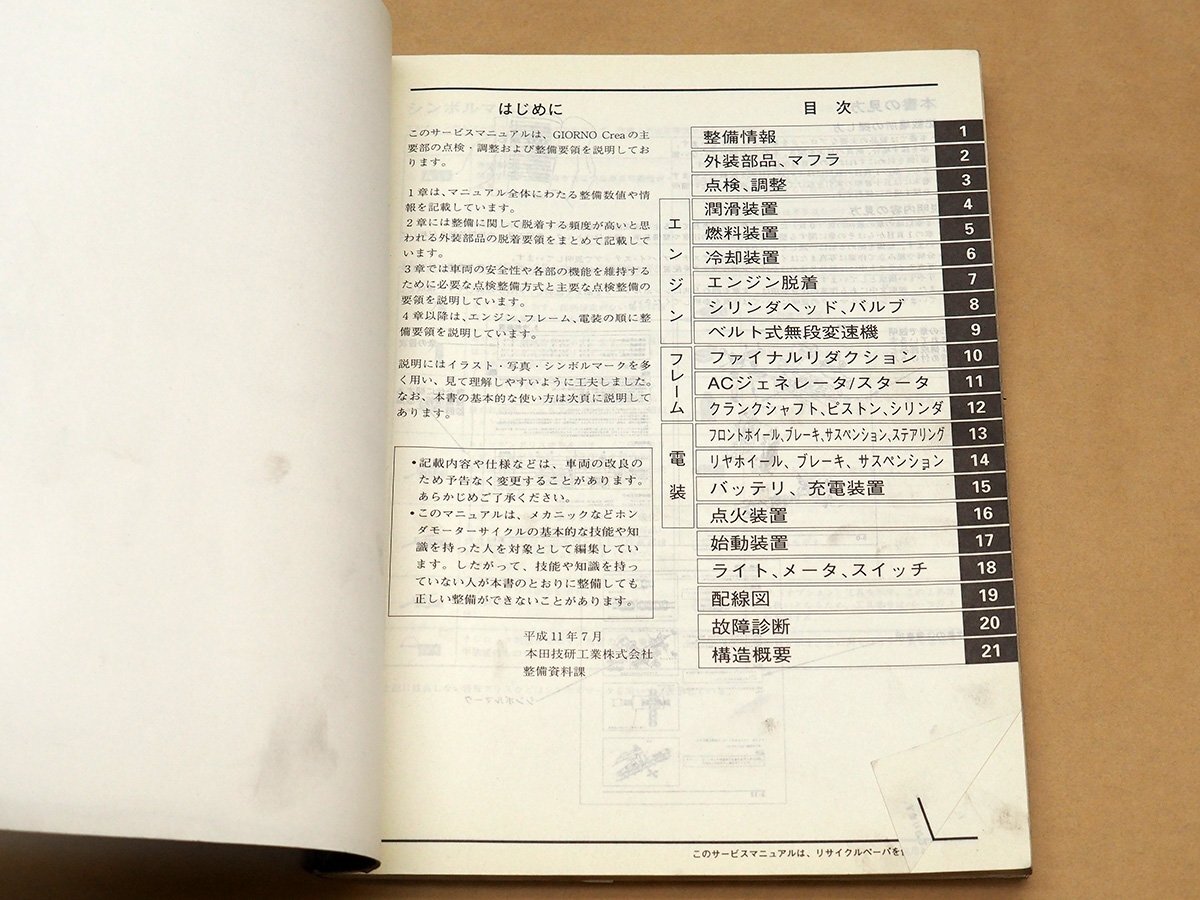 はじめに
このサービスマニュアルは、GIORNO Creaの主
要部の点検・調整および整備要領を説明してお
ります。
1章は、マニュアル全体にわたる整備数値や情
報を記載しています。
2章には整備に関して脱着する頻度が高いと思
われる外装部品の脱着要領をまとめて記載して
います。
3章では車両の安全性や各部の機能を維持する
ために必要な点検整備方式と主要な点検整備の
要領を説明しています。
4章以降は、エンジン、フレーム、電装の順に整
備要領を説明しています。
説明にはイラスト・写真・シンボルマークを多
く用い、見て理解しやすいように工夫しました。
なお、本書の基本的な使い方は次頁に説明して
あります。
•記載内容や仕様などは、車両の改良の
ため予告なく変更することがあります。
あらかじめご了承ください。
•このマニュアルは、メカニックなどホン
ダモーターサイクルの基本的な技能や知
識を持った人を対象として編集してい
ます。したがって、技能や知識を持っ
ていない人が本書のとおりに整備しても
正しい整備ができないことがあります。
平成11年7月
本田技研工業株式会社
整備資料課
目 次
整備情報 1
外装部品、マフラ 2
点検、調整 3
エンジン
潤滑装置 4
燃料装置 5
冷却装置 6
エンジン脱着 7
シリンダヘッド、バルブ 8
ベルト式無段変速機 9
フレーム
ファイナルリダクション 10
ACジェネレータ/スタータ 11
クランクシャフト、ピストン、シリンダ 12
電装
フロントホイール、ブレーキ、サスペンション、ステアリング 13
リヤホイール、ブレーキ、サスペンション 14
バッテリ、充電装置 15
点火装置 16
始動装置 17
ライト、メータ、スイッチ 18
配線図 19
故障診断 20
構造概要 21
このサービスマニュアルは、リサイクルペーパを